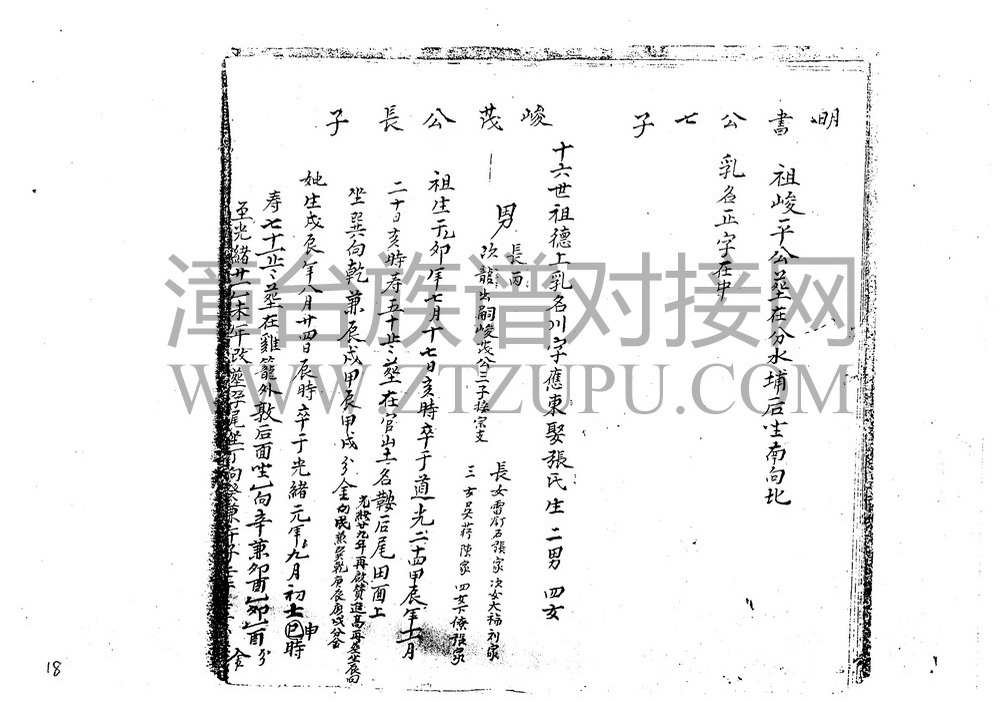 明書公七子
祖峻平公塟在分水埔后坐南向北
乳名正字在中
峻茂公長子
十六世祖德上乳名川字應東娶張氏生二男四女
男
長丙
次龍出嗣峻茂公三子接宗支
長女雷釘石張家次女大福刘家
三女吴蒋陳家四女下僚張家
祖生于乙卯年七月十七日亥時卒于道光二十四甲辰年十二月
二十日亥時寿五十塟在官山土名鞍后尾田面上
坐巽向乾兼辰戌甲辰甲戌分金
光緒廿九年再啟攢進高再塟坐辰向
向戌兼巽乾庚辰庚戌分金
妣生戊辰年八月廿四日辰時卒于光緒元年九月初七巳時
申
寿七十塟在雞籠外敦后面坐乙向辛兼卯酉乙卯乙酉分
金
至光緒廿一乙未年改塟
18
漳台族谱对接网
WWW.ZTZUPU.COM